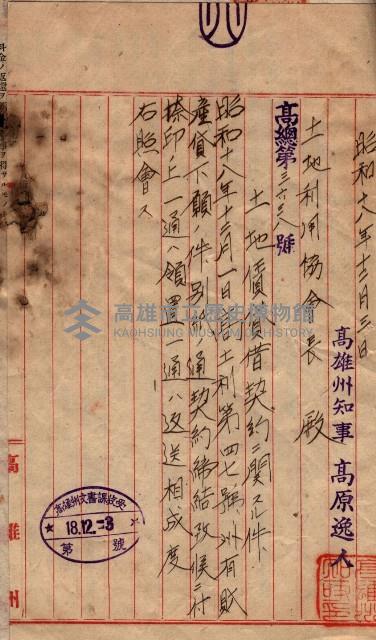 昭和十八年十二月三日
高雄州知事 高原逸人
土地利用協会長 殿
高總第三六三八號
土地賃貸借契約ニ関スル件
昭和十八年十二月一日附土利第四七號州有財
産貸下願ノ件別紙通契約締結致候ニ付
捺印ノ上一通ハ領置一通ハ返送相成度
右照會ス
高雄州文書課收受
18.12.-3
第 號
高雄州
高雄市立歷史博物館
KAOHSIUNG MUSEUM OF HISTORY